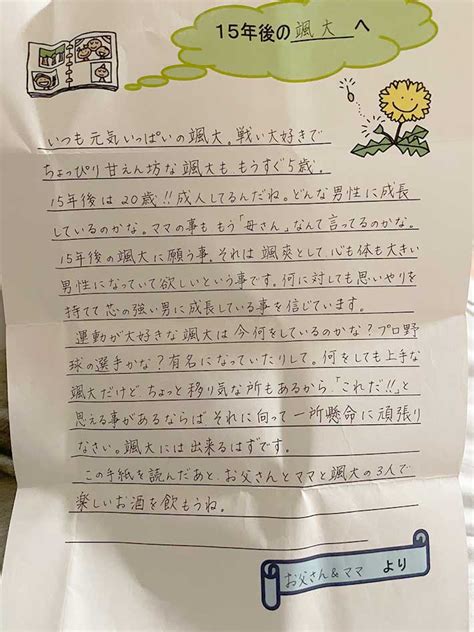 15年後の颯大へ
いつも元気いっぱいの颯大。戦い大好きで
ちょっぴり甘えん坊な颯大も、もうすぐ5歳。
15年後は20歳!!成人してるんだね。どんな男性に成長
しているのかな。ママの事ももう「母さん」なんて言ってるのかな。
15年後の颯大に願う事。それは颯爽として、心も体も大きい
男性になっていて欲しいという事です。何に対しても思いやりを
持てて芯の強い男に成長している事を信じています。
運動が大好きな颯大は今何をしているのかな?プロ野
球の選手かな?有名になっていたりして。何をしても上手な
颯大だけど、ちょっと移り気な所もあるから、「これだ!!」と
思える事があるならば それに向って一所懸命に頑張り
なさい。颯大には出来るはずです。
この手紙を読んだあと、お父さんとママと颯大の3人で
楽しいお酒を飲もうね。
お父さん&ママ より